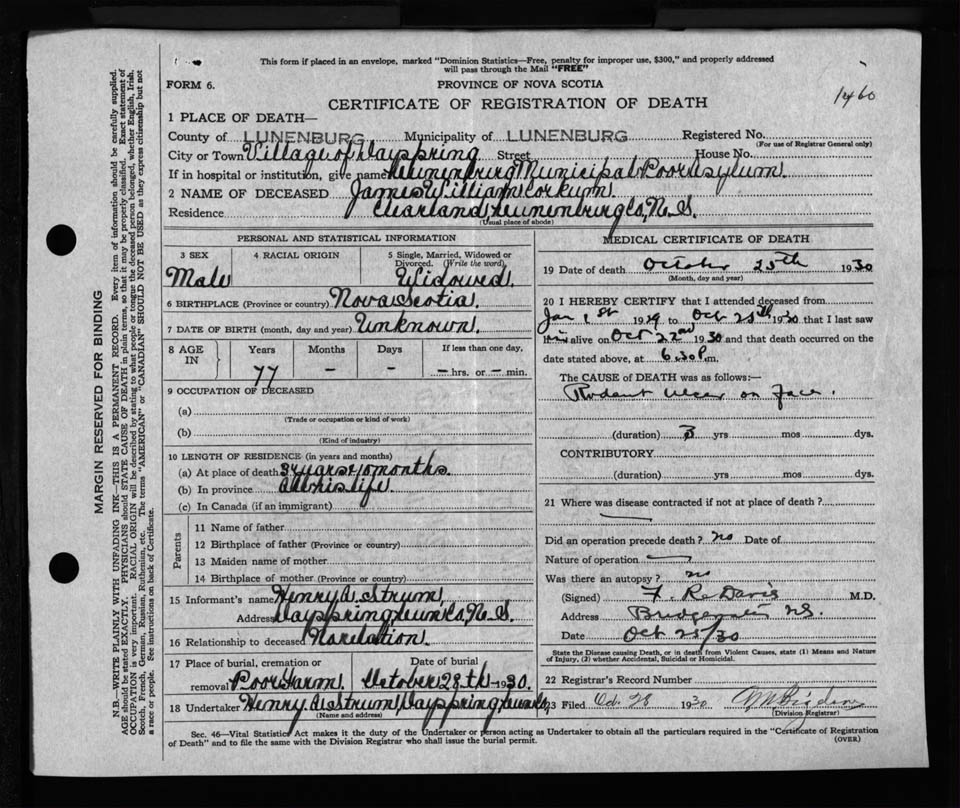 This form if placed in an envelope, marked "Dominion Statistics—Free, penalty for improper use, $300," and properly addressed
will pass through the Mail "FREE"
FORM 6.
PROVINCE OF NOVA SCOTIA
CERTIFICATE OF REGISTRATION OF DEATH
1460
1 PLACE OF DEATH—
County of LUNENBURG Municipality of LUNENBURG Registered No.
(For use of Registrar General only)
City or Town Village of Dayspring Street House No.
If in hospital or institution, give name Lunenburg Municipal Poor Asylum.
2 NAME OF DECEASED James William Corkum.
Residence Clearland, Lunenburg Co, N.S.
(Usual place of abode)
PERSONAL AND STATISTICAL INFORMATION
3 SEX
Male
4 RACIAL ORIGIN
5 Single, Married, Widowed or
Divorced. (Write the word)
Widowed.
6 BIRTHPLACE (Province or country) Nova Scotia.
7 DATE OF BIRTH (month, day and year) Unknown.
8 AGE IN
Years Months Days If less than one day,
77 – – – hrs. or – min.
9 OCCUPATION OF DECEASED
(a)
(Trade or occupation or kind of work)
(b)
(Kind of industry)
10 LENGTH OF RESIDENCE (in years and months)
(a) At place of death 3 years 10 months.
(b) In province All his life.
(c) In Canada (if an immigrant)
Parents
11 Name of father
12 Birthplace of father (Province or country)
13 Maiden name of mother
14 Birthplace of mother (Province or country)
15 Informant's name Henry A. Strum.
Address Dayspring, Lun Co, N.S.
16 Relationship to deceased No relation.
17 Place of burial, cremation or Date of burial
removal Poor Farm. October 28th 1930.
18 Undertaker Henry A. Strum, Dayspring, Lun Co,
(Name and address)
MEDICAL CERTIFICATE OF DEATH
19 Date of death October 25th 1930
(Month, day and year)
20 I HEREBY CERTIFY that I attended deceased from
Jan 1st 1929 to Oct 25th 1930 that I last saw
him alive on Oct 22nd 1930 and that death occurred on the
date stated above, at 6.30 P.m.
The CAUSE of DEATH was as follows:—
Rodent ulcer on face.
(duration) 3 yrs mos dys.
CONTRIBUTORY
(duration) yrs mos dys.
21 Where was disease contracted if not at place of death?
Did an operation precede death? no Date of
Nature of operation
Was there an autopsy? no
(Signed) F. R. Davis M.D.
Address Bridgewater NS.
Date Oct 25/30
State the Disease causing Death, or in death from Violent Causes, state (1) Means and Nature
of Injury, (2) whether Accidental, Suicidal or Homicidal.
22 Registrar's Record Number
23 Filed Oct. 28 1930
(Division Registrar)
Sec. 46—Vital Statistics Act makes it the duty of the Undertaker or person acting as Undertaker to obtain all the particulars required in the "Certificate of Registration
of Death" and to file the same with the Division Registrar who shall issue the burial permit. (OVER)
MARGIN RESERVED FOR BINDING
N.B.—WRITE PLAINLY WITH UNFADING INK—THIS IS A PERMANENT RECORD. Every item of information should be carefully supplied.
AGE should be stated EXACTLY. PHYSICIANS should STATE CAUSE OF DEATH in plain terms, so that it may be properly classified. Exact statement of
OCCUPATION is very important. RACIAL ORIGIN will be described by stating to what people or tongue the deceased person belonged, whether English, Irish,
Scotch, French, German, Russian, Ruthenian, etc. The terms "AMERICAN" or "CANADIAN" SHOULD NOT BE USED as they express citizenship but not
a race or people. See instructions on back of Certificate.